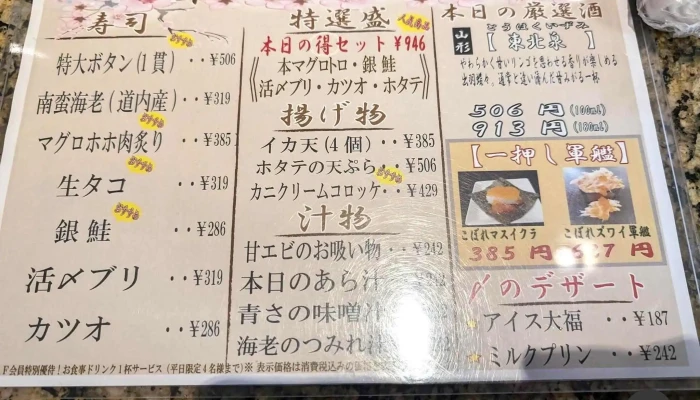 寿司
おすすめ
特大ボタン(1貫)‥¥506
南蛮海老(道内産)‥¥319
おすすめ
マグロホホ肉炙り‥¥385
おすすめ
生タコ ‥¥319
おすすめ
銀鮭 ‥¥286
活〆ブリ ‥¥319
カツオ ‥¥286
特選盛
人気商品
本日の得セット ¥946
本マグロトロ・銀鮭
活〆ブリ・カツオ・ホタテ
揚げ物
イカ天(4個)‥¥385
ホタテの天ぷら‥¥506
おすすめ
カニクリームコロッケ‥¥429
汁物
甘エビのお吸い物‥¥242
本日のあら汁
青さの味噌汁
海老のつみれ汁
本日の厳選酒
とうほくいずみ
山形【 東北泉 】
やわらかく甘いリンゴを思わせる香りが楽しめる
506 円(100ml)
913 円(180ml)
【一押し軍艦】
こぼれマスイクラ
385 円
こぼれズワイ軍艦
円
〆のデザート
アイス大福 ‥¥187
ミルクプリン ‥¥242
F会員特別優待!お食事ドリンク1杯サービス(平日限定4名様まで)※表示価格は消費税込みの